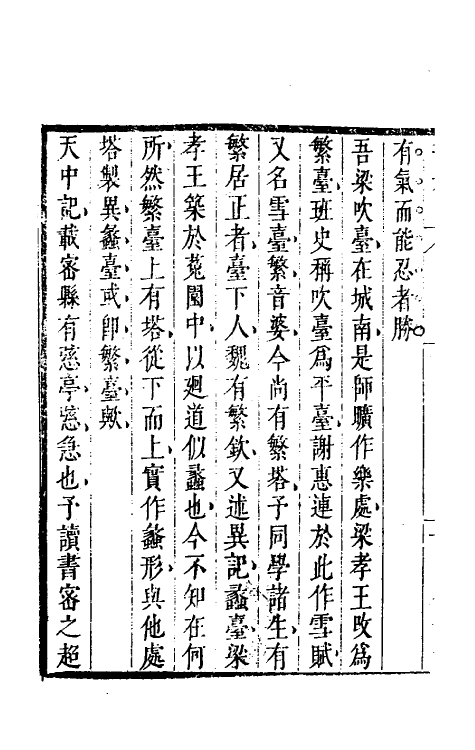 有氣而能忍者勝
吾梁吹臺在城南是師曠作樂處梁孝王改爲
繁臺班史稱吹臺爲平臺謝惠連於此作雪賦
又名雪臺繁音婆今尚有繁塔子同學諸生有
繁居正者臺下人魏有繁欽又述異記蠡臺梁
孝王築於菟園中以廻道似蠡也今不知在何
所然繁臺上有塔從下而上實作蠡形與他處
塔製異蠡臺或卽繁臺歟
天中記載密縣有㥯亭㥯急也予讀書密之超